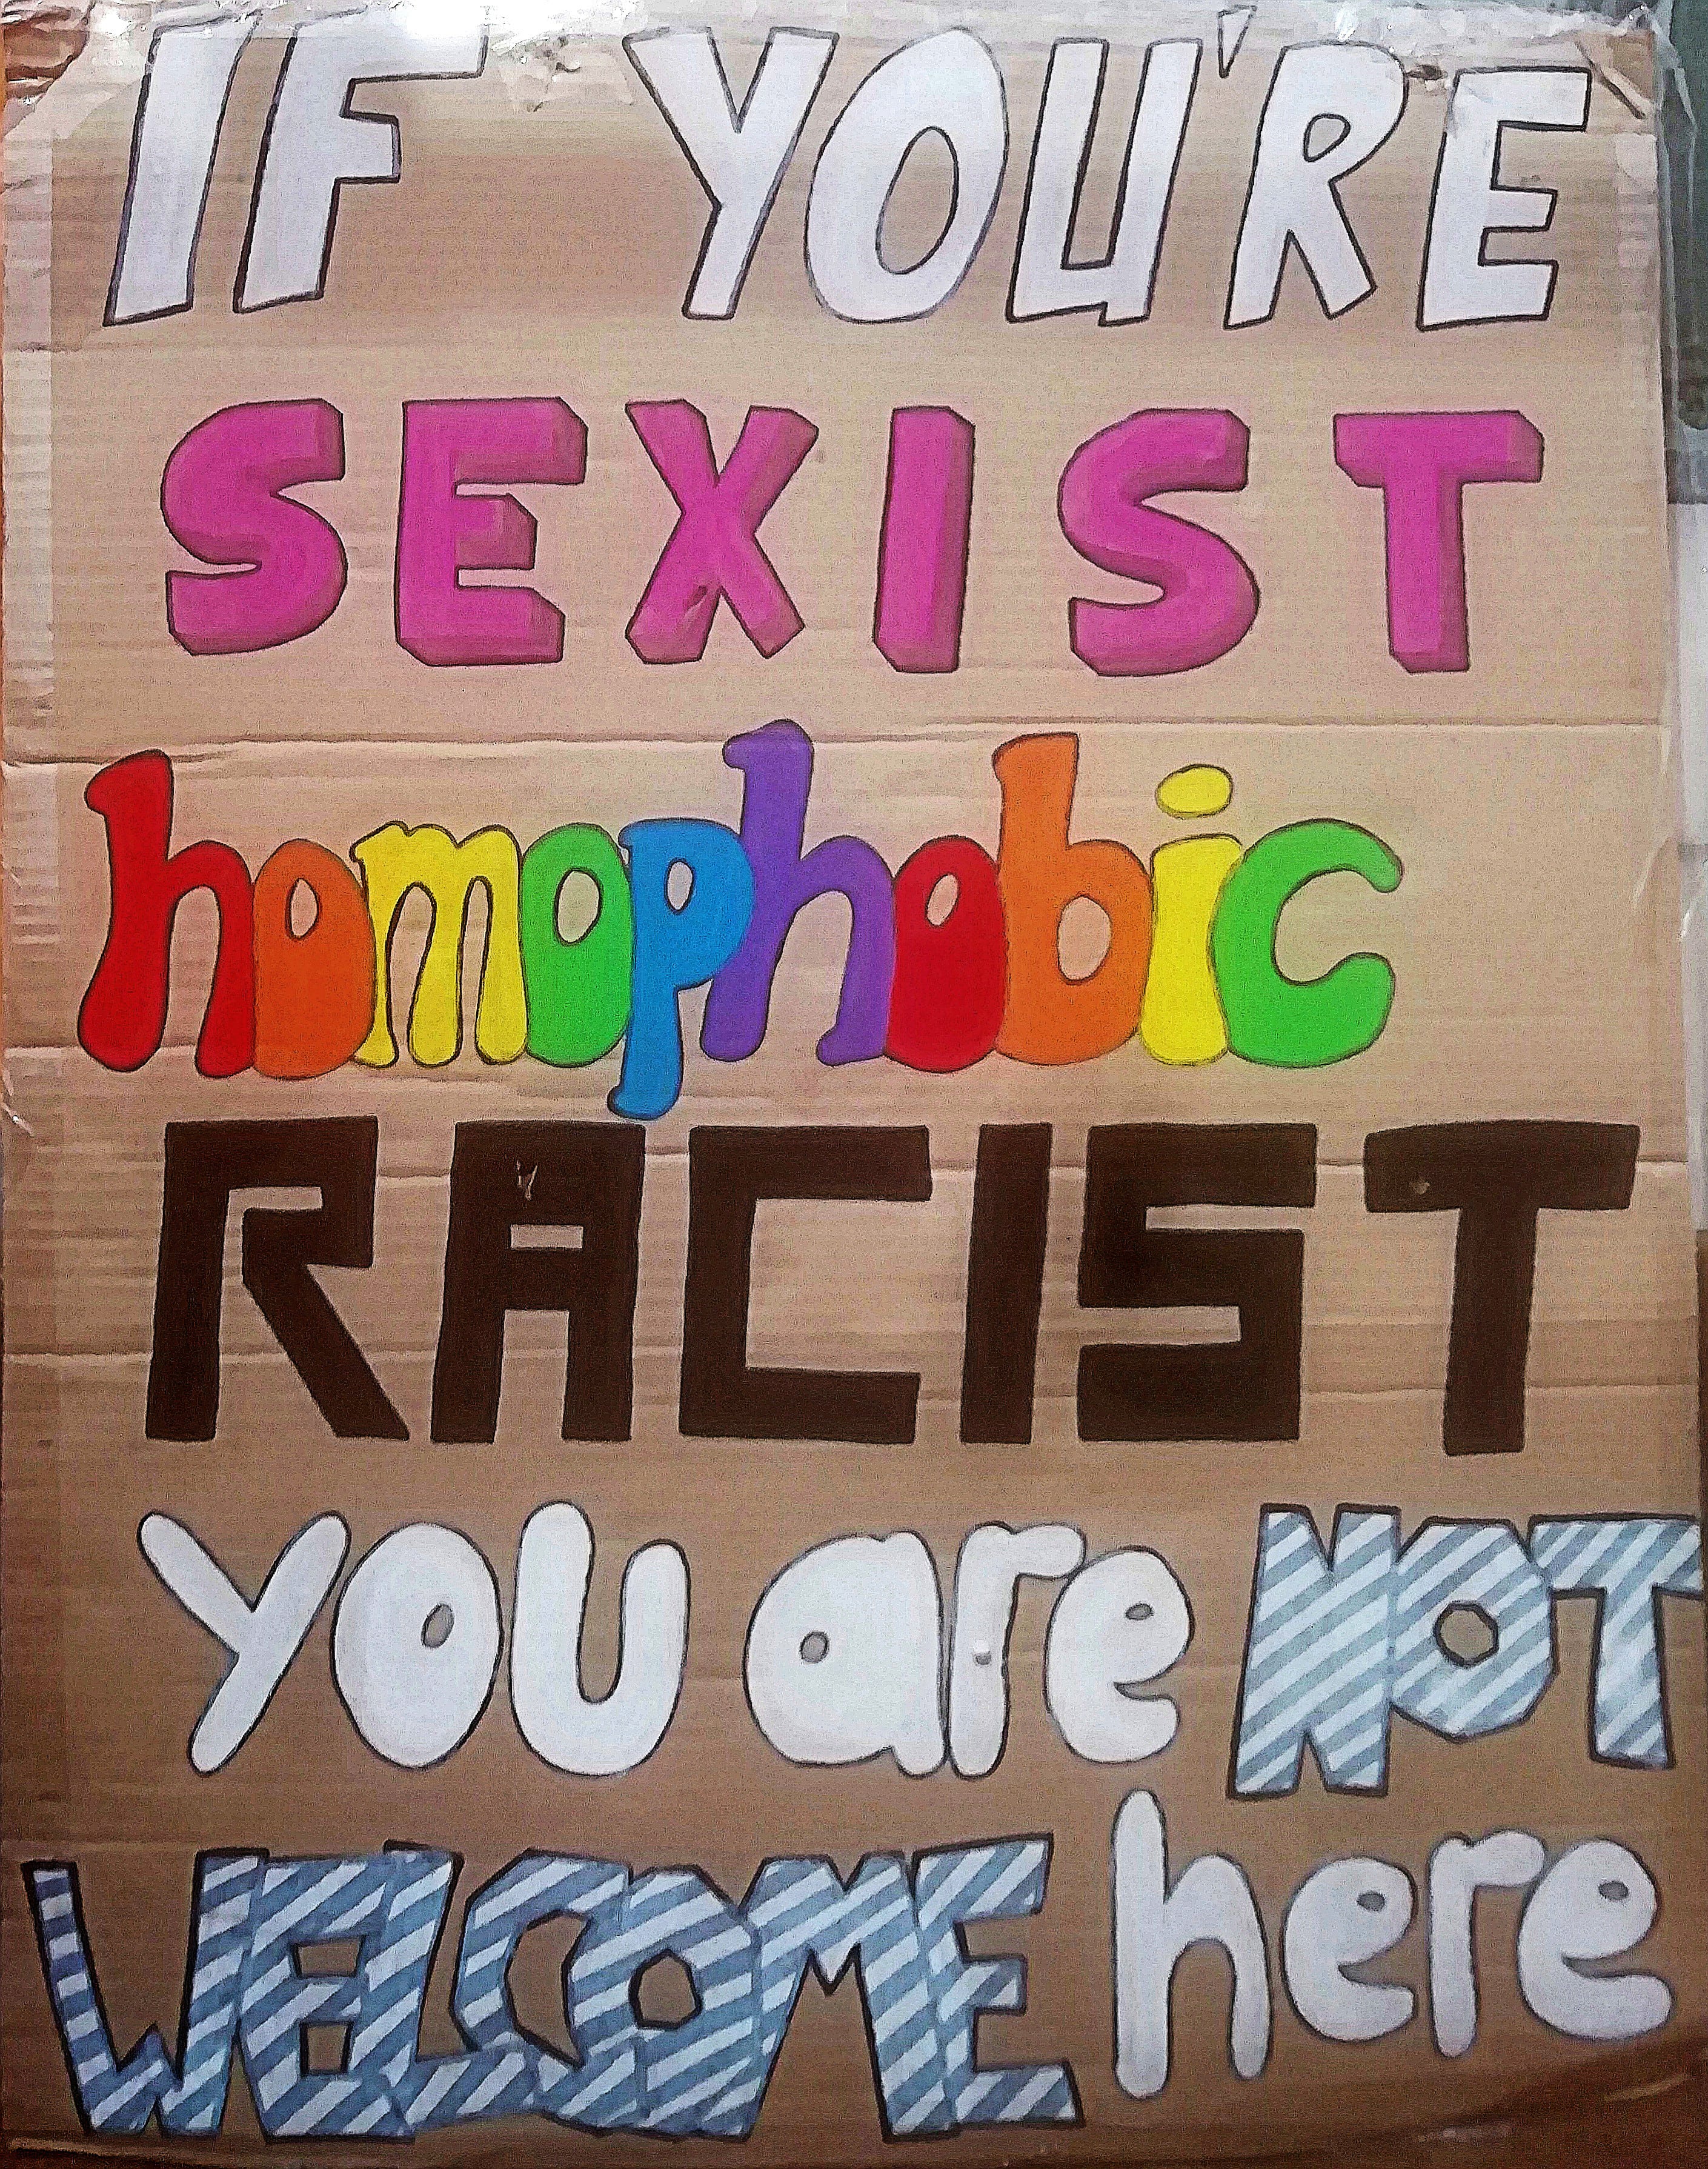 IF YOU'RE
SEXIST
homophobic
RACIST
you are NOT
WELCOME here